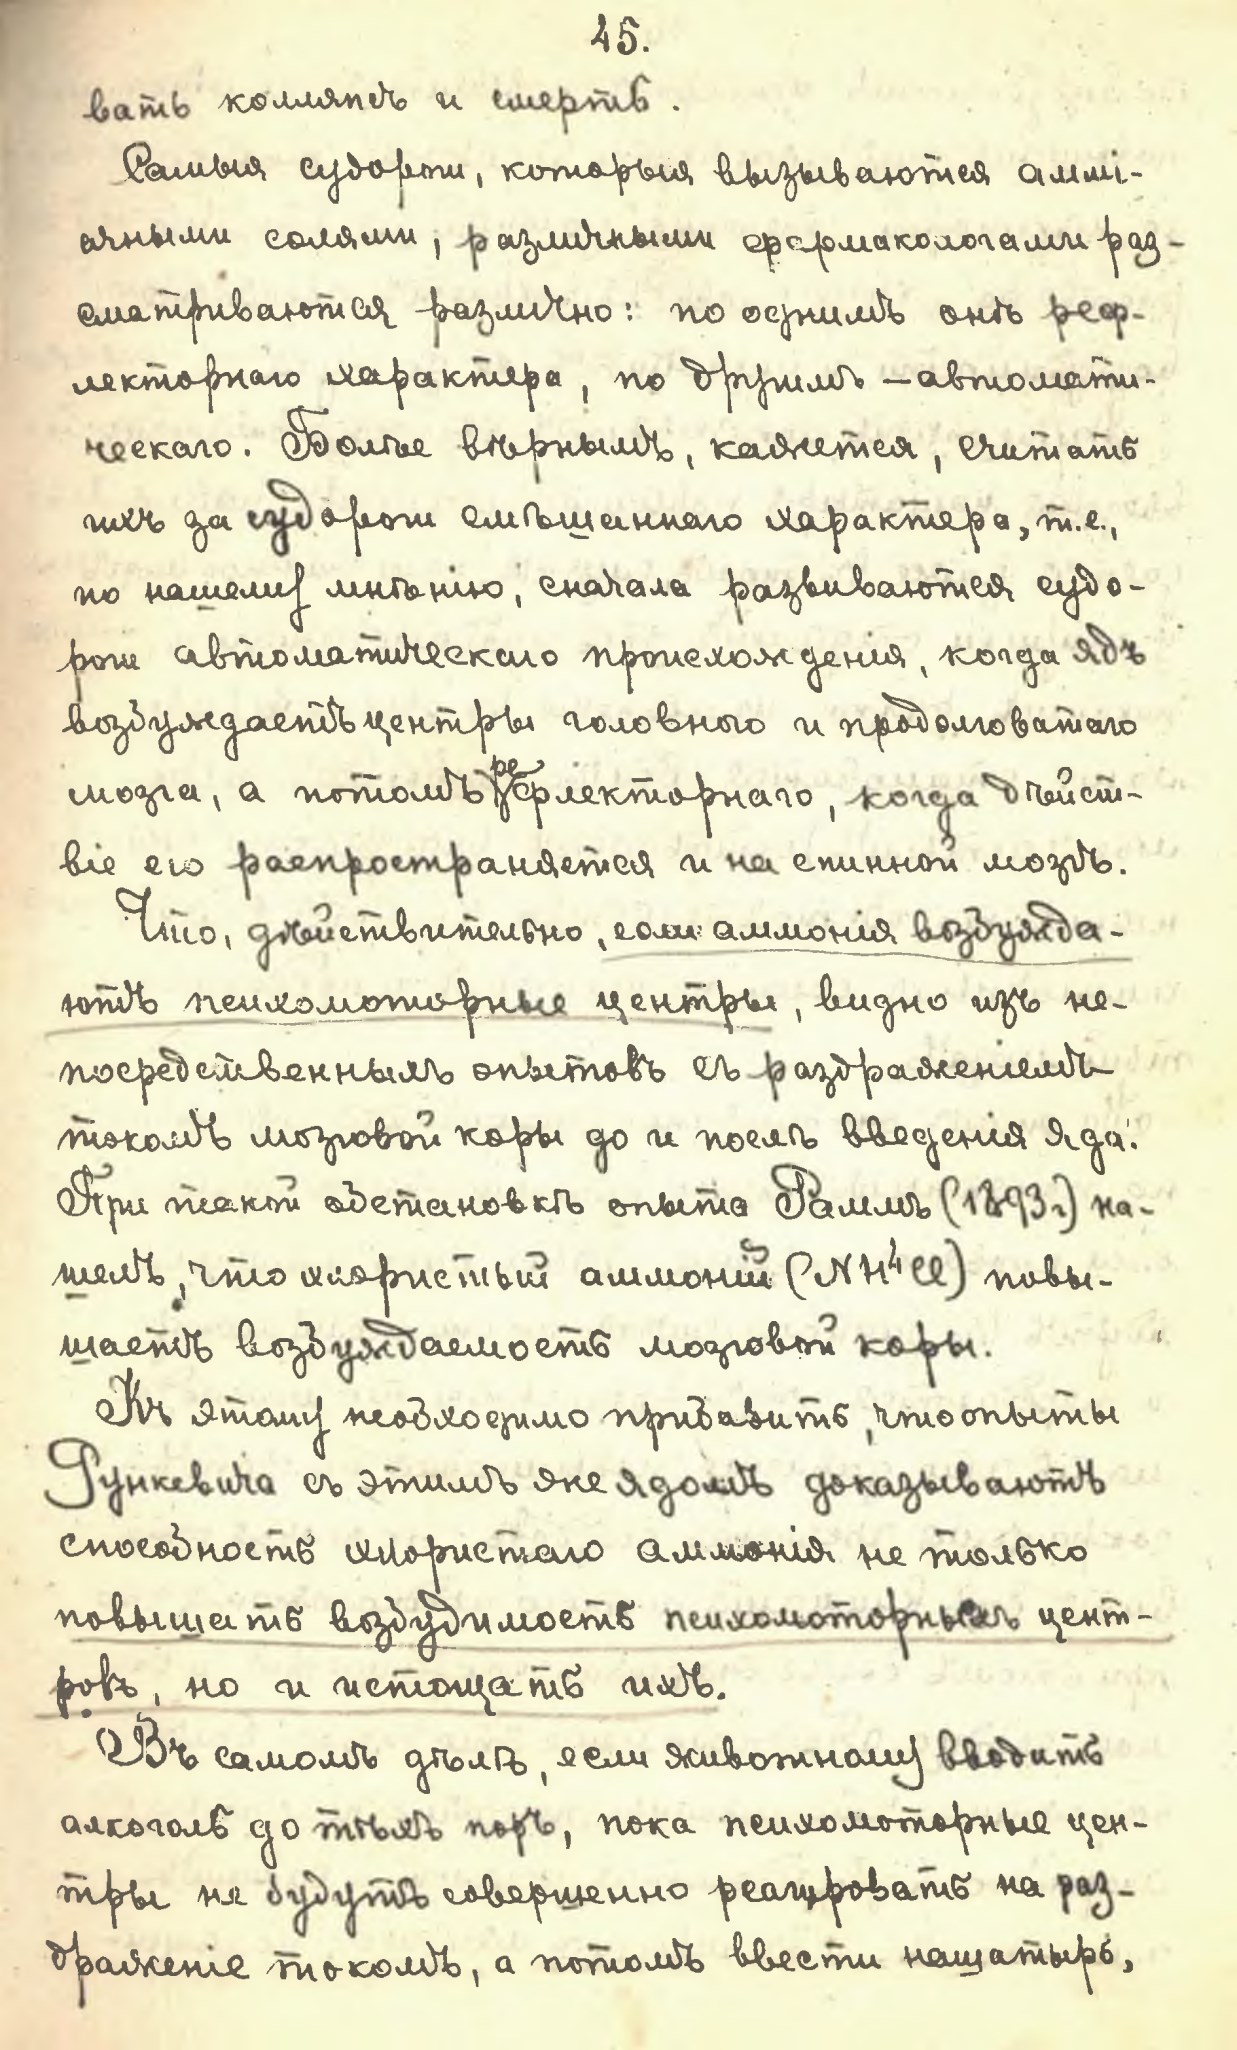 45.
вать коллапсъ и смерть.
Самыя судороги, которыя вызываются аммі-
ачными солями, различными фармакологами раз-
сматриваются различно: по однимъ онѣ реф-
лекторнаго характера, по другимъ – автомати-
ческаго. Болѣе вѣрнымъ, кажется, считать
ихъ за судороги смѣшаннаго характера, т.е.,
по нашему мнѣнію, сначала развиваются судо-
роги автоматическаго происхожденія, когда ядъ
возбуждаетъ центры головного и продолговатаго
мозга, а потомъ рефлекторнаго, когда дѣйст-
віе его распространяется и на спинной мозгъ.
Что, дѣйствительно, соли аммонія возбужда-
ютъ психомоторные центры, видно изъ не-
посредственныхъ опытовъ съ раздраженіемъ
токомъ мозговой коры до и послѣ введенія яда.
При такой обстановкѣ опыта Раммъ (1893 г) на-
шелъ, что хлористый аммоній (NH⁴Cl) повы-
шаетъ возбуждаемость мозговой коры.
Къ этому необходимо прибавить, что опыты
Гункевича съ этимъ же ядомъ доказываютъ
способность хлористаго аммонія не только
повышать возбудимость психомоторныхъ цент-
ровъ, но и истощать ихъ.
Въ самомъ дѣлѣ, если животному вводить
алкоголь до тѣхъ поръ, пока психомоторные цен-
тры не будутъ совершенно реагировать на раз-
драженіе токомъ, а потомъ ввести нашатырь,